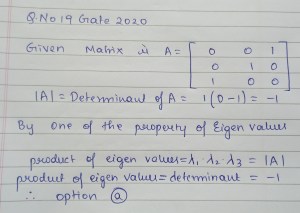 Q.No 19 Gate 2020
Given Matrix is A = [ 0 0 1
0 1 0
1 0 0 ]
|A| = Determinant of A = 1(0-1) = -1
By one of the property of Eigen values
product of eigen values = λ₁ . λ₂ . λ₃ = |A|
product of eigen values = determinant = -1
∴ option ⓐ